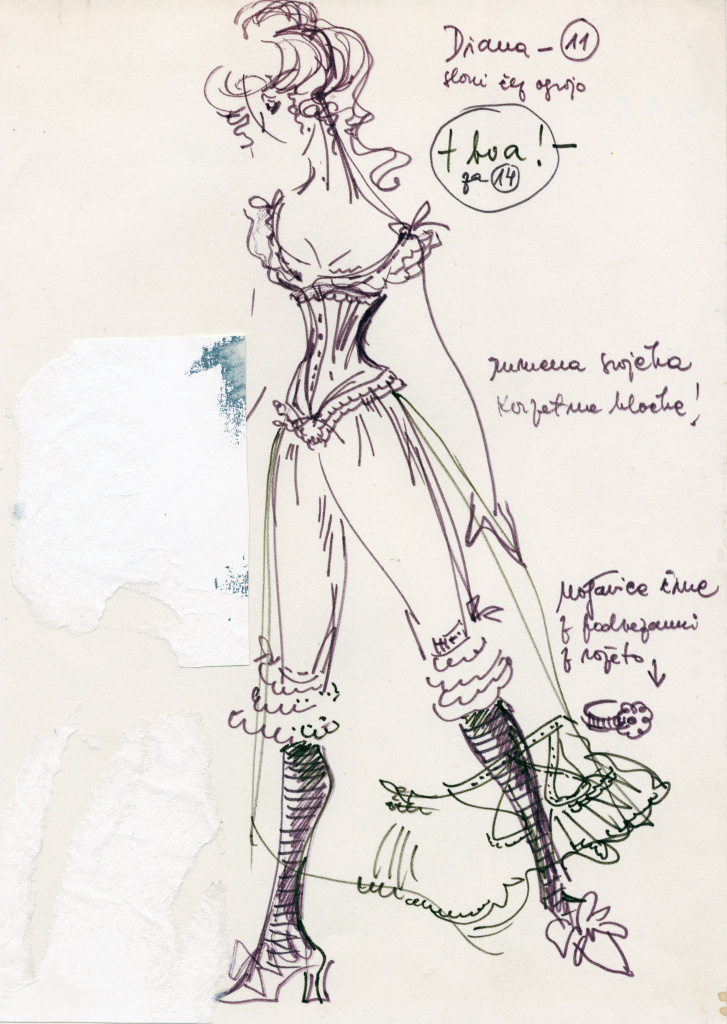 Diana - 11
sloni čez ograjo
+ boa! -
za 14
rumena svojeha
Korzetne hlačke!
nogavice črne
z podvezami
z rožeto